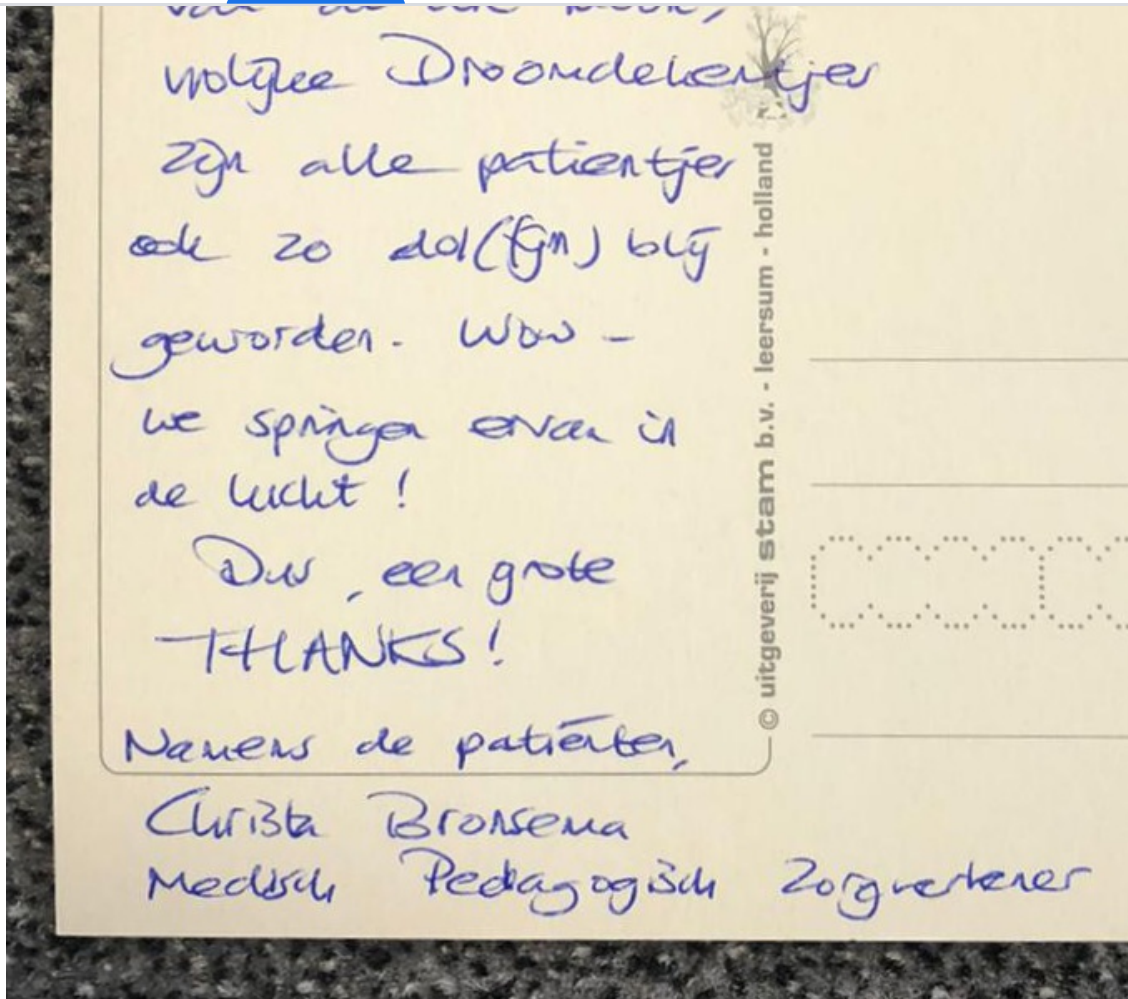 vrolijke Droomdekentjes
zijn alle patientjes
ook zo dol(fijn) blij
geworden. Wow -
we springen ervan in
de lucht!
Dus, een grote
THANKS!
Namens de patiënten,
Christa Bronsema
Medisch Pedagogisch Zorgverlener
© uitgeverij stam b.v. - leersum - holland